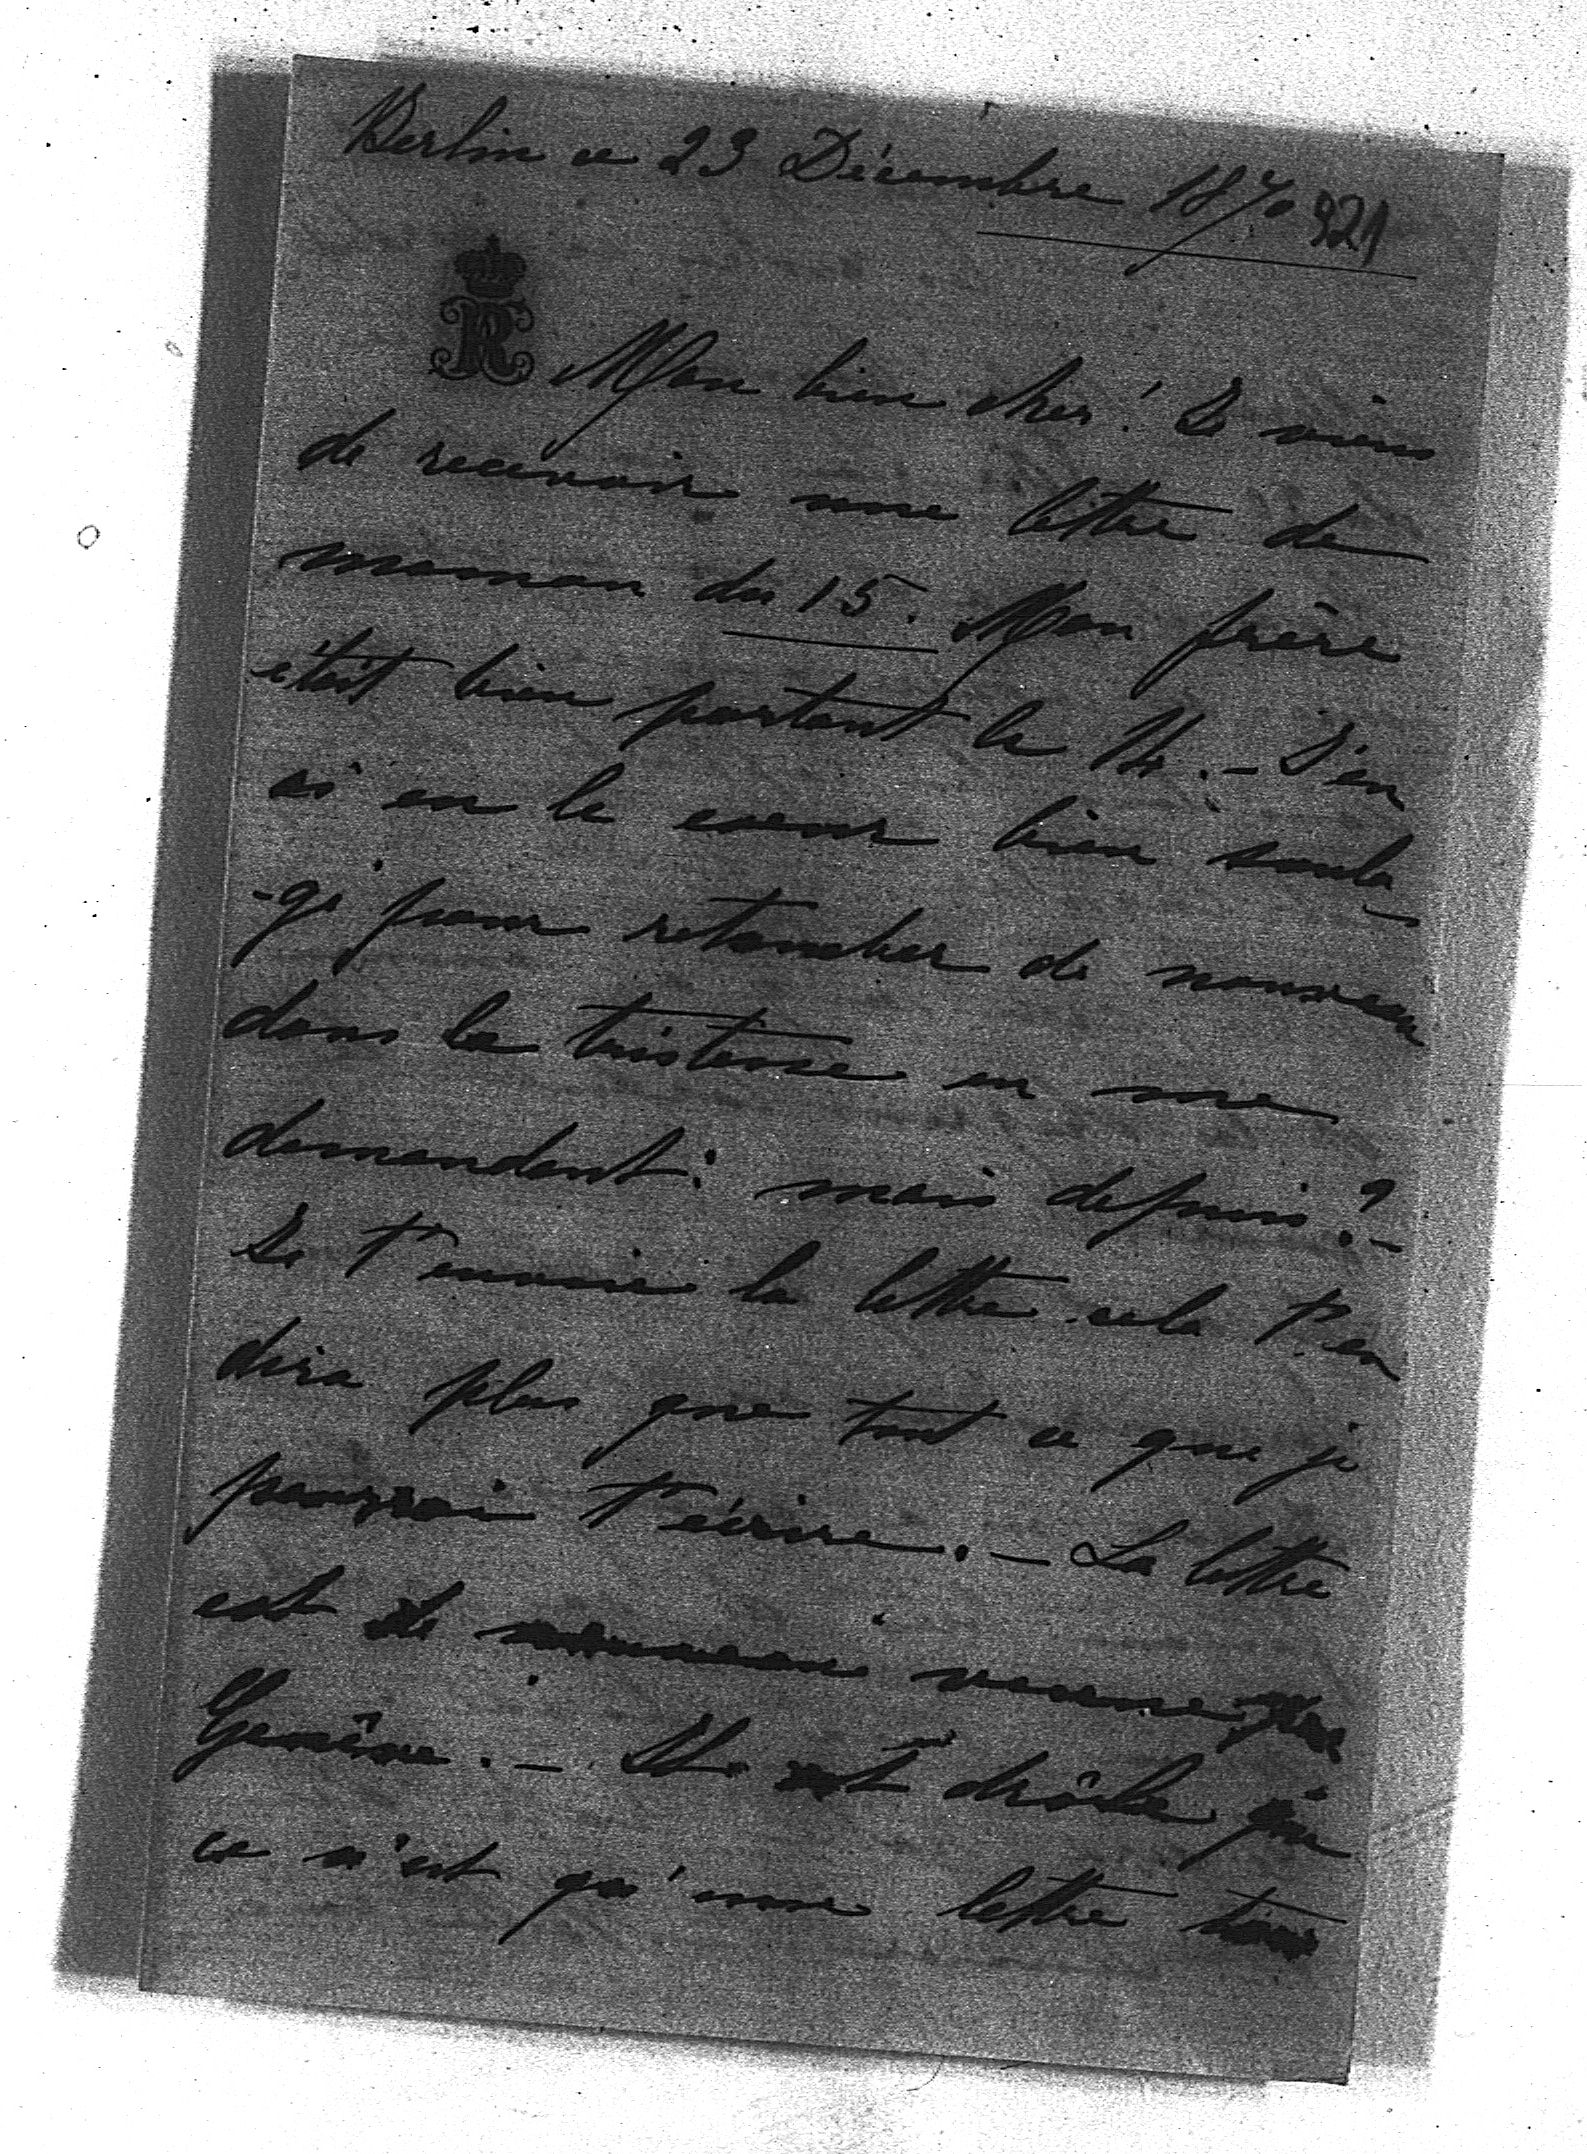 Berlin ce 23 Décembre 1870 921
R
Mon bien cher! Je viens
de recevoir une lettre de
maman du 15. Mon frère
était bien portant le 14. – J'en
ai eu le coeur bien soula-
-gé pour retomber de nouveau
dans la tristesse en me
demandant: mais depuis? –
Je t'envoie la lettre cela t'en
dira plus que tout ce que je
pourrai t'écrire. – La lettre
est de nouveau venue par
Genêve. – drôle que
ce n'est qu'une lettre